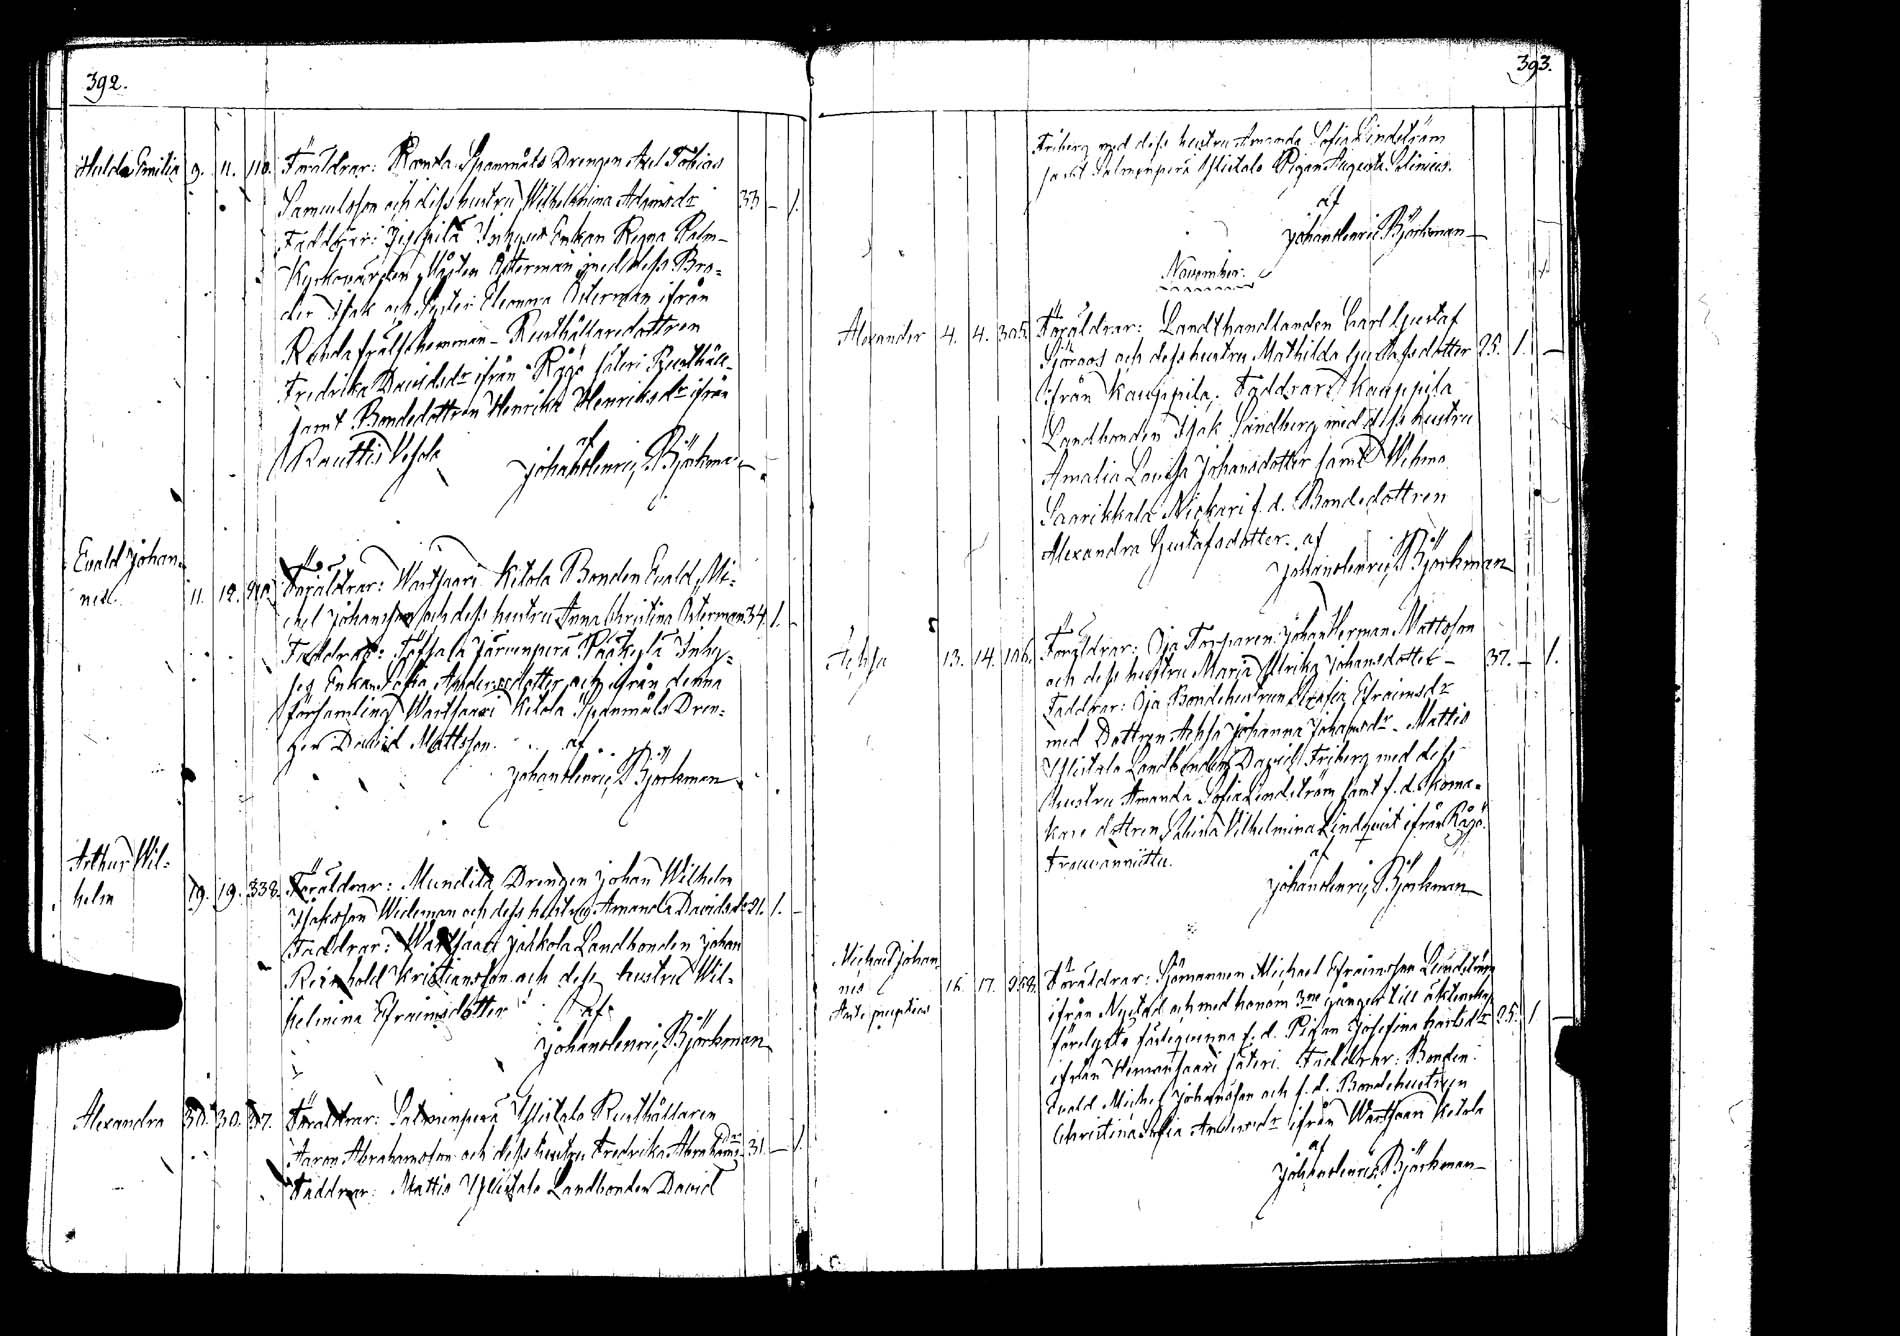 392.
Hulda Emilia 9. 11. 110. Föräldrar: Ronda Spanmåls Drengen Axel Tobias
Samuelsson och dess hustru Wilhelmina Adamsdr 33 – 1.
Faddrar: Inhyses Enkan Regna Palm–
Kyrkovärden Mårten Österman med dess Bro=
der Isak och Syster Eleonora Österman ifrån
Ronda frälsehemman – Rusthållaredottren
Fredrika Davidsdr ifrån Rågö säteri Rusthåll–
samt Bondedottren Henrika Henriksdr ifrån
Rauttis Vesola af
Johan Henric Björkman
Evald Johan=
nes. 11. 12. Föräldrar: Wartsaari Ketola Bonden Evald Mi=
chel Johansson och dess hustru Anna Christina Österman 34. 1. –
Faddrar: Töfsala Järvenperä Inhy=
ses Enkan Sofia Andersdotter och ifrån denna
församling Wartsaari Ketola Spanmåls Dren=
gen David Mattsson. af
Johan Henric Björkman
Arthur Wil=
helm 19. 19. 338. Föräldrar: Mundila Drengen Johan Wilhelm
Isaksson Wideman och dess hustru Amanda Davidsdr 21. 1. –
Faddrar: Wartsaari Jokkola Landbonden Johan
Reinhold Kristiansson och dess hustru Wil=
helmina Efraimsdotter af
Johan Henric Björkman
Alexandra 30. 30. Föräldrar: Salmenperä Ylistalo Rusthållaren
Aaron Abrahamsson och dess hustru Fredrika Abrahamsdr 31. – 1.
Faddrar: Mattis Ylistalo Landbonden David
393.
Friberg med dess hustru Amanda Sofia Lindström
samt Salmenperä Ylistalo Pigan Augusta Selinius.
af
Johan Henric Björkman
November.
Alexander 4. 4. 305. Föräldrar: Landthandlanden Carl Gustaf
Sjöroos och dess hustru Mathilda Gustafsdotter 25. 1. –
ifrån Kauppila, Faddrar: Kauppila
Landbonden Isak Sandberg med dess hustru
Amalia Lovisa Johansdotter samt Wehmo
Saarikkala Nickari f. d. Bondedottren
Alexandra Gustafsdotter. af
Johan Henric Björkman
Achsa 13. 14. 106. Föräldrar: Oja Torparen Johan Herman Mattsson
och dess hustru Maria Ulrika Johansdotter – 37. – 1.
Faddrar: Oja Bondehustrun Serafia Efraimsdr
med Dottren Achsa Johanna Johansdr. Mattis
Ylistalo Landbonden David Friberg med dess
hustru Amanda Sofia Lindström samt f. d. Skoma=
kare dottren Sabina Vilhelmina Lindqvist ifrån Rågö
af
Johan Henric Björkman
Michael Johan=
nes 16. 17. 258. Föräldrar: Sjömannen Michael Efraimsson Lindström
ifrån Nystad och med honom 3ne gånger till äktenskap
förelyste fästeqvinna f. d. Pigan Josefina Carlsdr 25. 1 –
ifrån Hermansaari säteri. Faddrar: Bonden
Evald Michel Johansson och f. d. Bondehustrun
Christina Sofia Andersdr ifrån Wartsaari Ketola
af
Johan Henric Björkman